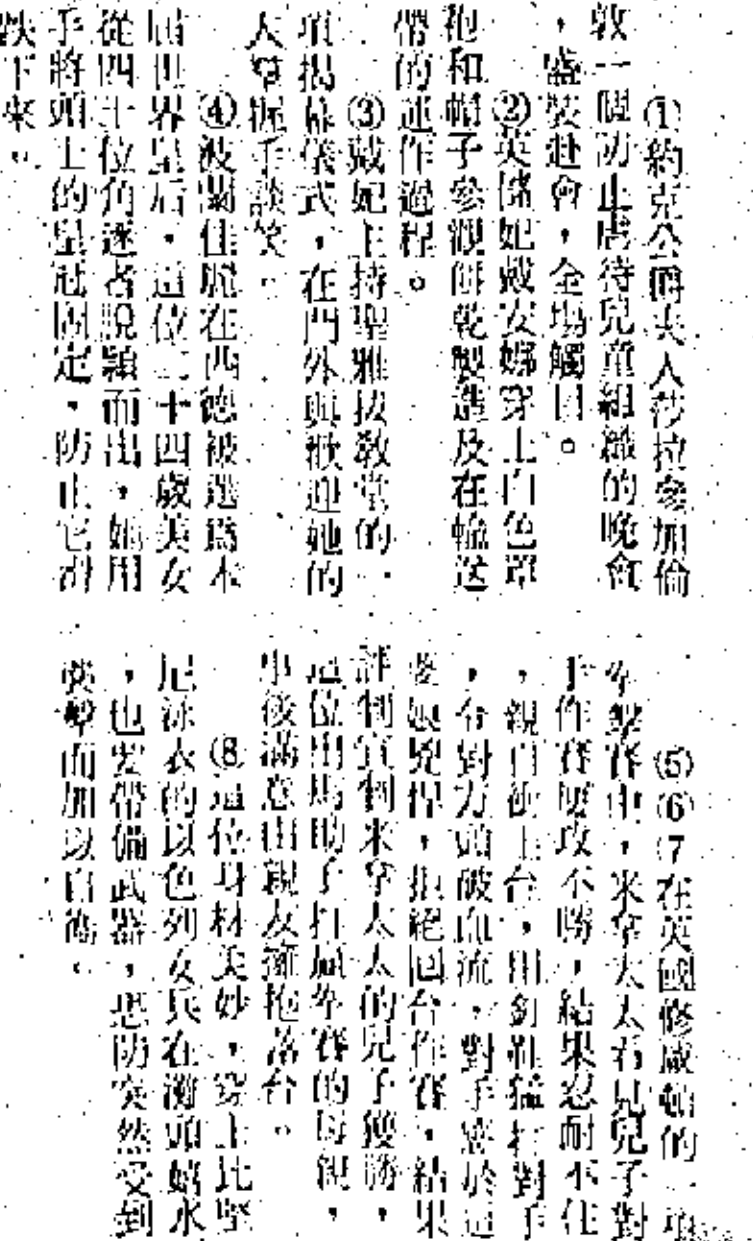 ①約克公爵夫人莎拉參加倫
敦一個防止虐待兒童組織的晚會
，盛裝赴會，全場觸目。
②英儲妃戴安娜穿上白色罩
袍和帽子參觀餅乾製造及在輸送
帶的運作過程。
③戴妃主持聖雅拔教堂的一
項揭幕儀式，在門外與歡迎她的
人羣握手談笑。
④被關佳麗在西德被選爲本
屆世界皇后，這位二十四歲美女
從四十位角逐者脫穎而出，她用
手將頭上的皇冠固定，防止它滑
跌下來。
⑤⑥⑦在英國修咸頓的一項
拳擊賽中，米拿太太看見兒子對
手作賽屢攻不勝，結果忍耐不住
，親自衝上台，用釘鞋猛打對手
，令對方頭破血流，對手鑒於這
婆娘兇悍，拒絕回台作賽，結果
評判宣判米拿太太的兒子獲勝，
這位出馬助子打贏拳賽的母親，
事後滿意由親友擁抱落台。
⑧這位身材美妙，穿上比堅
尼泳衣的以色列女兵在灘頭嬉水
，也要帶備武器，恐防突然受到
襲擊而加以自衞。